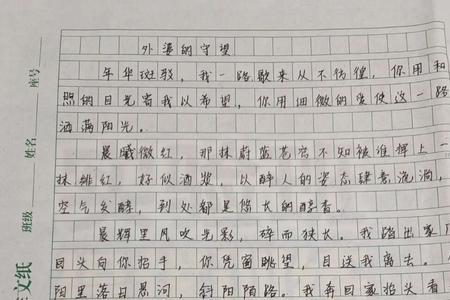 外婆的守望
年华斑驳，我一路歌来从不彷徨，你用和
煦的目光寄我以希望，你用细微的爱使这一路
洒满阳光。
晨曦微红，那抹蔚蓝苍穹不知被谁挥上一
抹绯红，好似酒浆，以醉人的姿态肆意流淌，
空气发酵，到处都是悠长的醇香。
晨辉里风吹光影，碎而狭长。我踏出家
回头向你招手，你凭窗眺望，目送我离去。
阳里落日悬河，斜阳陌路。我奔回家抬头看
座号
姓名
班级
文纸